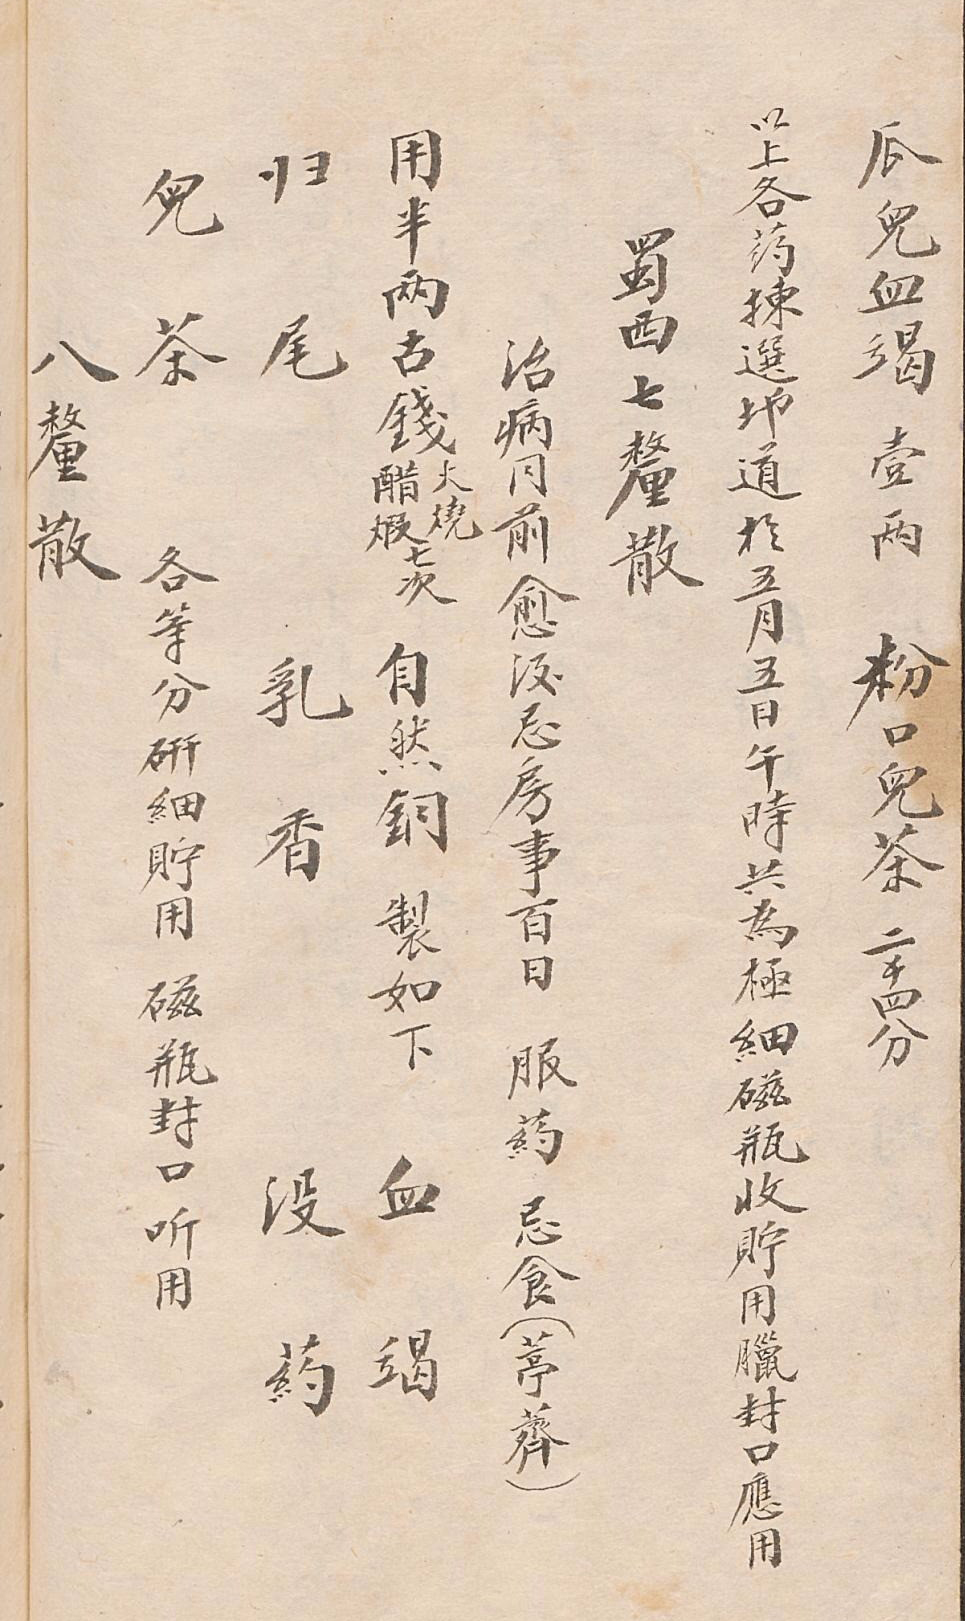 瓜兒血竭 壹兩 粉口兒茶 二銭四分
以上各药揀選地道於五月五日午時共為極細磁瓶收貯用臘封口應用
蜀西七釐散
治病同前愈後忌房事百日 服药 忌食(葶薺)
用半两古錢火燒醋煅七次 自然銅 製如下 血竭
归尾 乳香 没药
兒茶 各等分研細貯用 磁瓶封口听用
八釐散